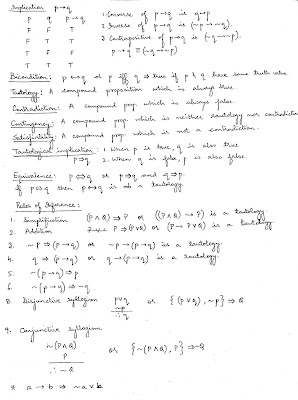 Implication p→q
p q p→q 1. Converse of p→q is q→p
F F T 2. Inverse of p→q is (¬p→¬q).
F T T 3. Contrapositive of p→q is (¬q→¬p).
T F F p→q ≡ (¬q→¬p)
T T T
Bicondition: p↔q or p iff q ⇒ true if p & q have same truth value
Tautology: A compound proposition which is always true.
Contradiction: A compound prop. which is always false.
Contingency: A compound prop. which is neither tautology nor contradiction
Satisfiability: A compound prop which is not a contradiction.
Tautological implication: 1. When p is true, q is also true
p⇒q 2. When q is false, p is also false
Equivalence: p⇔q or p⇒q and q⇒p.
If p⇔q then p↔q is a tautology.
Rules of Inference:
1. Simplification (P∧Q)⇒P or ((P∧Q)→P) is a tautology
2. Addition P⇒(P∨Q) or (P→P∨Q) is a tautology.
3. ~p⇒(p→q) or ~p→(p→q) is a tautology.
4. q⇒(p→q) or q→(p→q) is a tautology.
5. ~(p→q)⇒p
6. ~(p→q)⇒~q
8. Disjunctive syllogism p∨q or {(P∨Q), ~P}⇒Q
~p
∴q
9. Conjunctive syllogism
~(P∧Q) or {~(P∧Q), P}⇒~Q
P
∴ ~Q
* a→b ⇒ ~a∨b